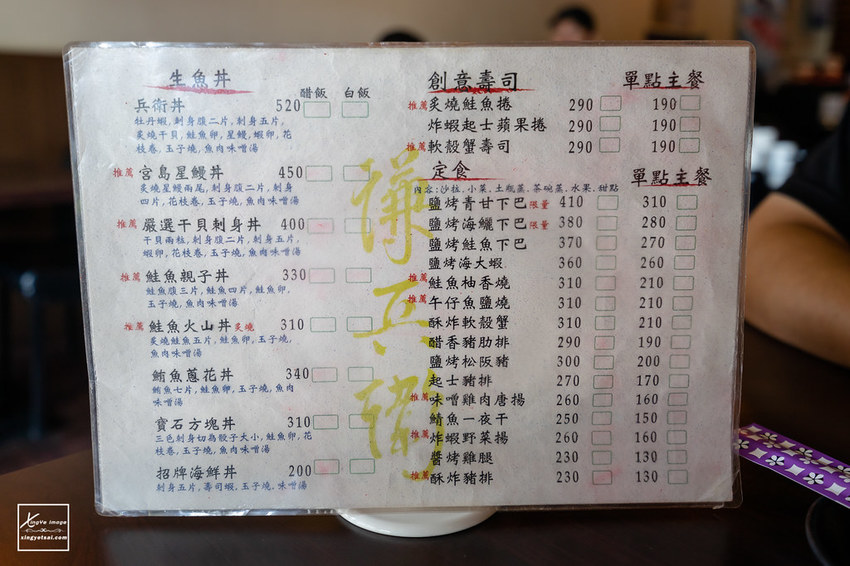 生魚丼
醋飯 白飯
兵衛丼 520
牡丹蝦, 刺身腹二片, 刺身五片,
炙燒干貝, 鮭魚卵, 星鰻, 蝦卵, 花
枝卷, 玉子燒, 魚肉味噌湯
推薦 宮島星鰻丼 450
炙燒星鰻兩尾, 刺身腹二片, 刺身
四片, 花枝卷, 玉子燒, 魚肉味噌湯
推薦 嚴選干貝刺身丼 400
干貝兩粒, 刺身腹二片, 刺身五片,
蝦卵, 花枝卷, 玉子燒, 魚肉味噌湯
推薦 鮭魚親子丼 330
鮭魚腹三片, 鮭魚四片, 鮭魚卵,
玉子燒, 魚肉味噌湯
推薦 鮭魚火山丼 炙燒 310
炙燒鮭魚五片, 鮭魚卵, 玉子燒,
魚肉味噌湯
鮪魚蔥花丼 340
鮪魚七片, 鮭魚卵, 玉子燒, 魚肉
味噌湯
寶石方塊丼 310
三色刺身切為骰子大小, 鮭魚卵, 花
枝卷, 玉子燒, 魚肉味噌湯
招牌海鮮丼 200
刺身五片, 壽司蝦, 玉子燒, 味噌湯
創意壽司 單點主餐
推薦 炙燒鮭魚捲 290 190
炸蝦起士蘋果捲 290 190
推薦 軟殼蟹壽司 290 190
定食 單點主餐
內容:沙拉, 小菜, 土瓶蒸, 茶碗蒸, 水果, 甜點
鹽烤青甘下巴 限量 410 310
鹽烤海鱺下巴 限量 380 280
鹽烤鮭魚下巴 370 270
鹽烤海大蝦 360 260
推薦 鮭魚柚香燒 310 210
推薦 午仔魚鹽燒 310 210
酥炸軟殼蟹 310 210
醋香豬肋排 290 190
鹽烤松阪豬 300 200
起士豬排 270 170
推薦 味噌雞肉唐揚 260 160
鯖魚一夜干 250 150
推薦 炸蝦野菜揚 260 160
醬烤雞腿 230 130
推薦 酥炸豬排 230 130
XingYe image
xingyetsai.com